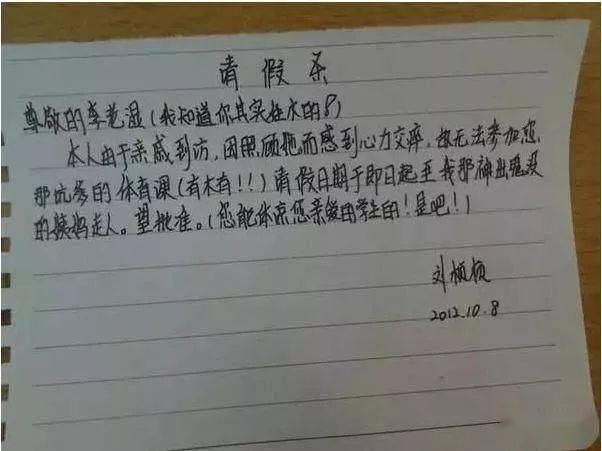 请假条
尊敬的李老湿(我知道你其实挺水的?)
本人由于亲戚到访,因照顾她而感到心力交瘁,极无法参加您
那坑爹的体育课(有木有!!)请假日期于即日起至我那神出鬼没
的姨妈走人。望批准。(您能体凉您亲爱的学生的!是吧!)
刘
2012.10.8